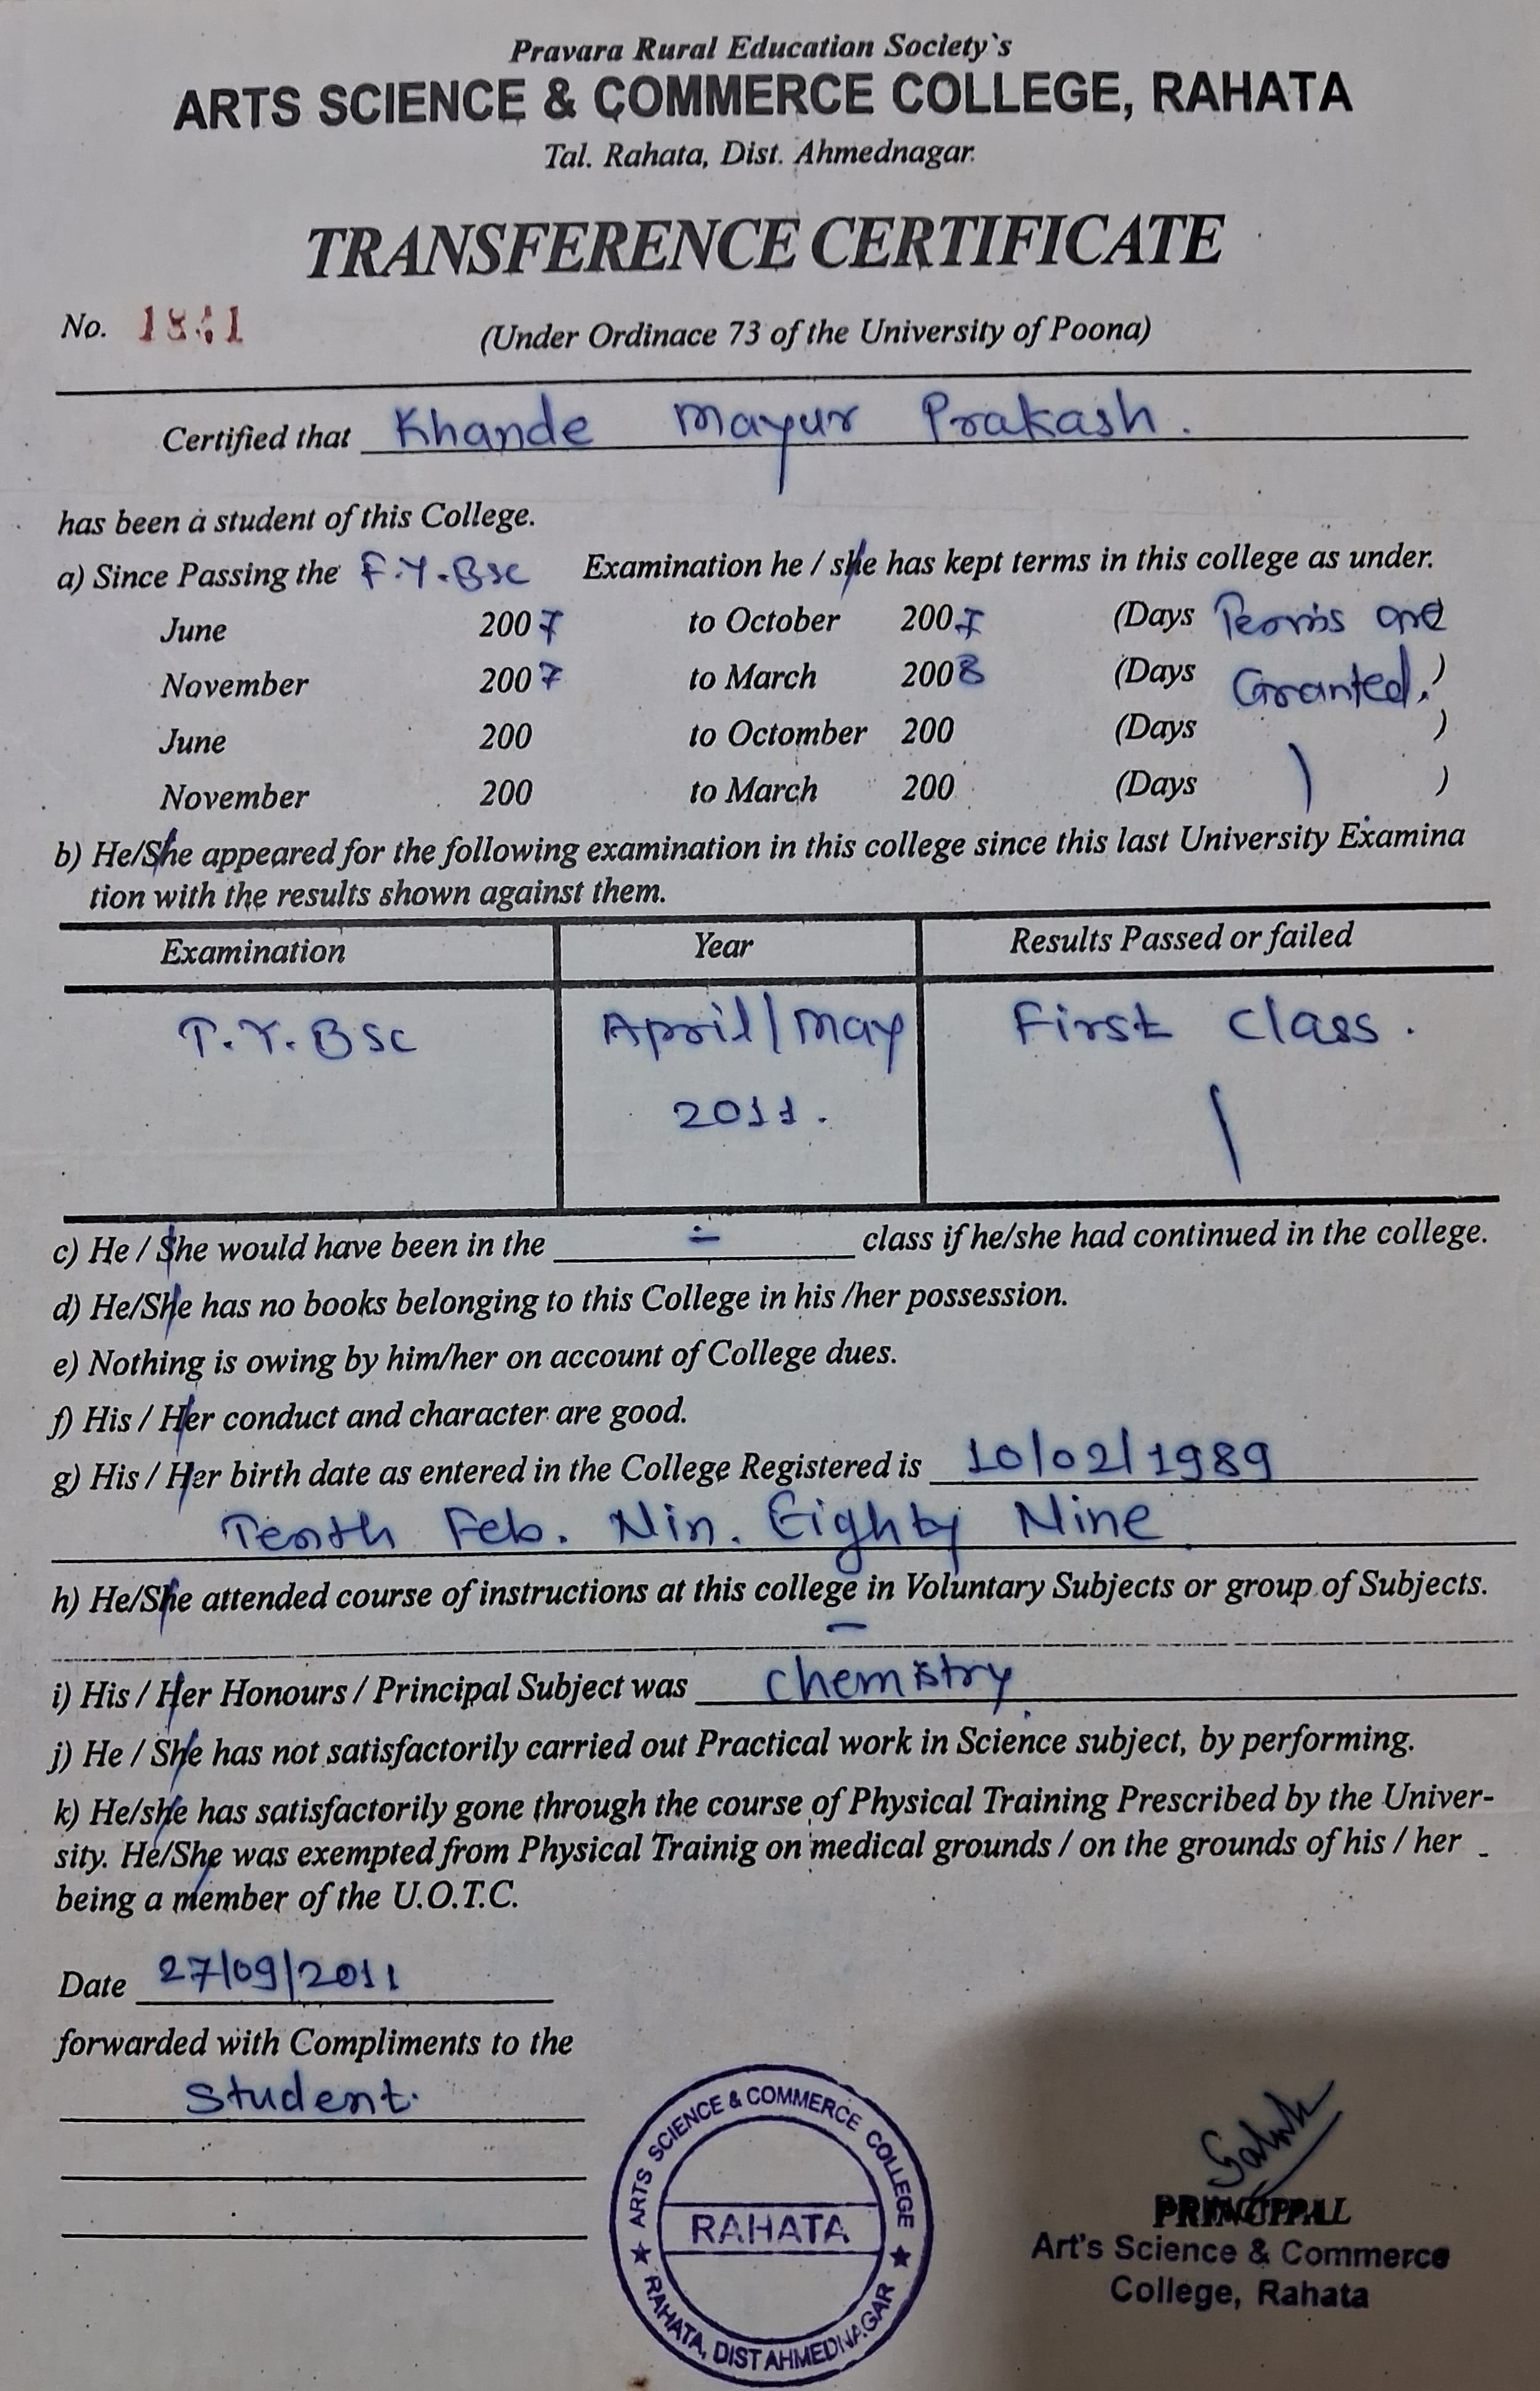 Pravara Rural Education Society`s
ARTS SCIENCE & COMMERCE COLLEGE, RAHATA
Tal. Rahata, Dist. Ahmednagar.
TRANSFERENCE CERTIFICATE
No.
(Under Ordinace 73 of the University of Poona)
Certified that Khande Mayur Prakash.
has been a student of this College.
a) Since Passing the F.Y.Bsc Examination he / she has kept terms in this college as under.
June 2007 to October 2007 (Days Terms are
November 2007 to March 2008 (Days Granted.)
June 200 to Octomber 200 (Days )
November 200 to March 200 (Days )
b) He/She appeared for the following examination in this college since this last University Examina
tion with the results shown against them.
Examination Year Results Passed or failed
T.Y.BSC April/May First Class.
2011.
c) He / She would have been in the - class if he/she had continued in the college.
d) He/She has no books belonging to this College in his /her possession.
e) Nothing is owing by him/her on account of College dues.
f) His / Her conduct and character are good.
g) His / Her birth date as entered in the College Registered is 10/02/1989
Tenth Feb. Nin. Eighty Nine
h) He/She attended course of instructions at this college in Voluntary Subjects or group of Subjects.
-
i) His / Her Honours / Principal Subject was Chemistry.
j) He / She has not satisfactorily carried out Practical work in Science subject, by performing.
k) He/she has satisfactorily gone through the course of Physical Training Prescribed by the Univer-
sity. He/She was exempted from Physical Trainig on medical grounds / on the grounds of his / her
being a member of the U.O.T.C.
Date 27/09/2011
forwarded with Compliments to the
Student.
ARTS SCIENCE & COMMERCE COLLEGE
RAHATA
★ RAHATA, DIST AHMEDNAGAR ★
PRINCIPAL
Art's Science & Commerce
College, Rahata